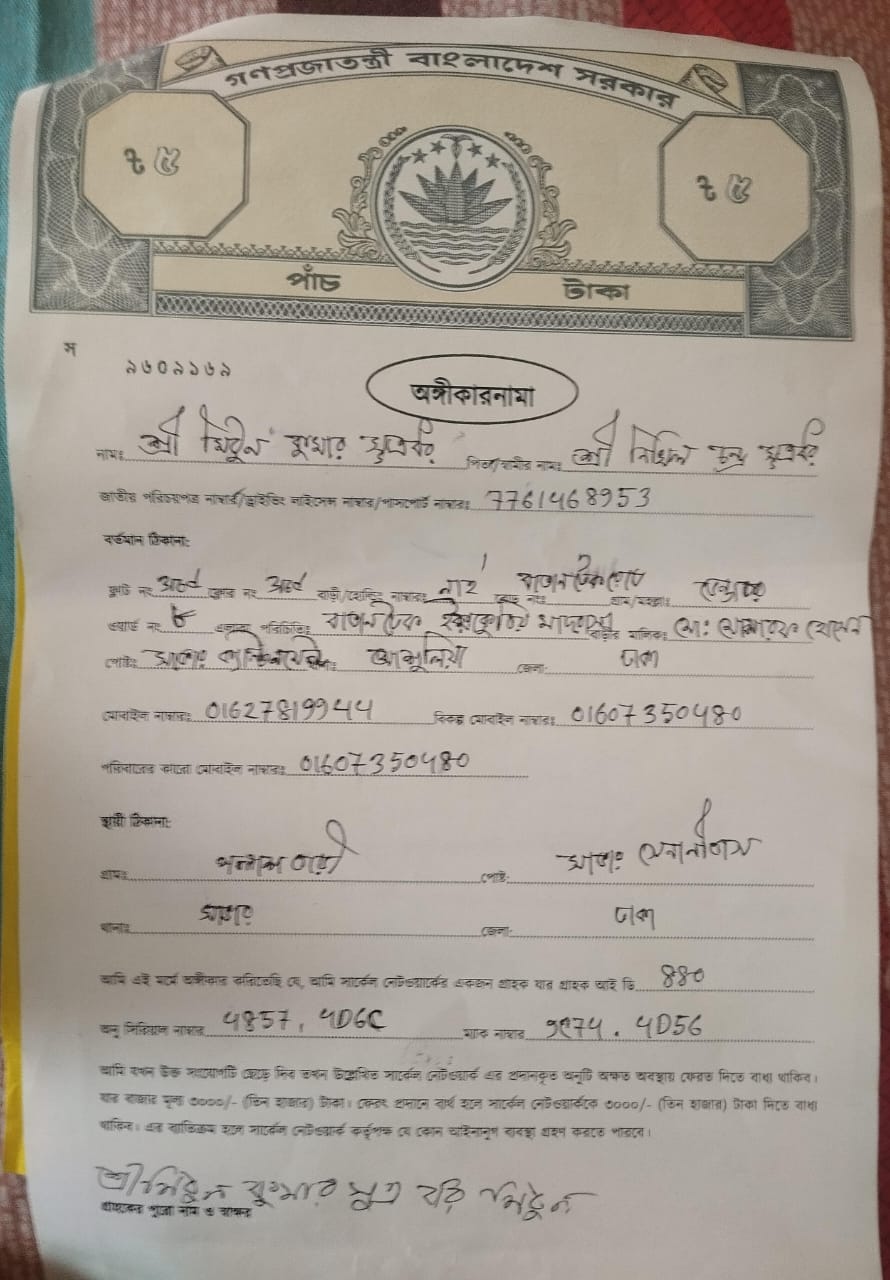 গণপ্রজাতন্ত্রী বাংলাদেশ সরকার
৳ ৫ ৳ ৫
পাঁচ টাকা
ম
৯৬০৯১৬৯
অঙ্গীকারনামা
নামঃ শ্রী মিঠুন কুমার সুত্রধর পিতা/স্বামীর নামঃ শ্রী নিখিল চন্দ্র সুত্রধর
জাতীয় পরিচয়পত্র নাম্বার/ড্রাইভিং লাইসেন্স নাম্বার/পাসপোর্ট নাম্বারঃ 7761468953
বর্তমান ঠিকানা:
ফ্লাট নং ফ্লোর নং বাড়ী/হোল্ডিং নাম্বারঃ নাই রোড নংঃ গ্রাম/মহল্লাঃ
ওয়ার্ড নং ৮ এলাকা পরিচিতিঃ বাড়ীর মালিকঃ মোঃ
পোষ্টঃ থানাঃ আশুলিয়া জেলা: ঢাকা
মোবাইল নাম্বারঃ 01627819944 বিকল্প মোবাইল নাম্বারঃ 01607350480
পরিবারের কারো মোবাইল নাম্বারঃ 01607350480
স্থায়ী ঠিকানা:
গ্রামঃ পোষ্ট: সাভার
থানাঃ সাভার জেলা: ঢাকা
আমি এই মর্মে অঙ্গীকার করিতেছি যে, আমি সার্কেল নেটওয়ার্কের একজন গ্রাহক যার গ্রাহক আই ডি 880
অনু সিরিয়াল নাম্বার 4857, 4D6C ম্যাক নাম্বার 9E74. 4D56
আমি যখন উক্ত সংযোগটি ছেড়ে দিব তখন উল্লেখিত সার্কেল নেটওয়ার্ক এর প্রদানকৃত অনুটি অক্ষত অবস্থায় ফেরত দিতে বাধ্য থাকিব।
যার বাজার মূল্য ৩০০০/- (তিন হাজার) টাকা। ফেরৎ প্রদানে ব্যর্থ হলে সার্কেল নেটওয়ার্ককে ৩০০০/- (তিন হাজার) টাকা দিতে বাধ্য
থাকিব। এর ব্যতিক্রম হলে সার্কেল নেটওয়ার্ক কর্তৃপক্ষ যে কোন আইনানুগ ব্যবস্থা গ্রহণ করতে পারবে।
শ্রী মিঠুন কুমার সুত্র ধর মিঠুন
গ্রাহকের পুরো নাম ও স্বাক্ষর